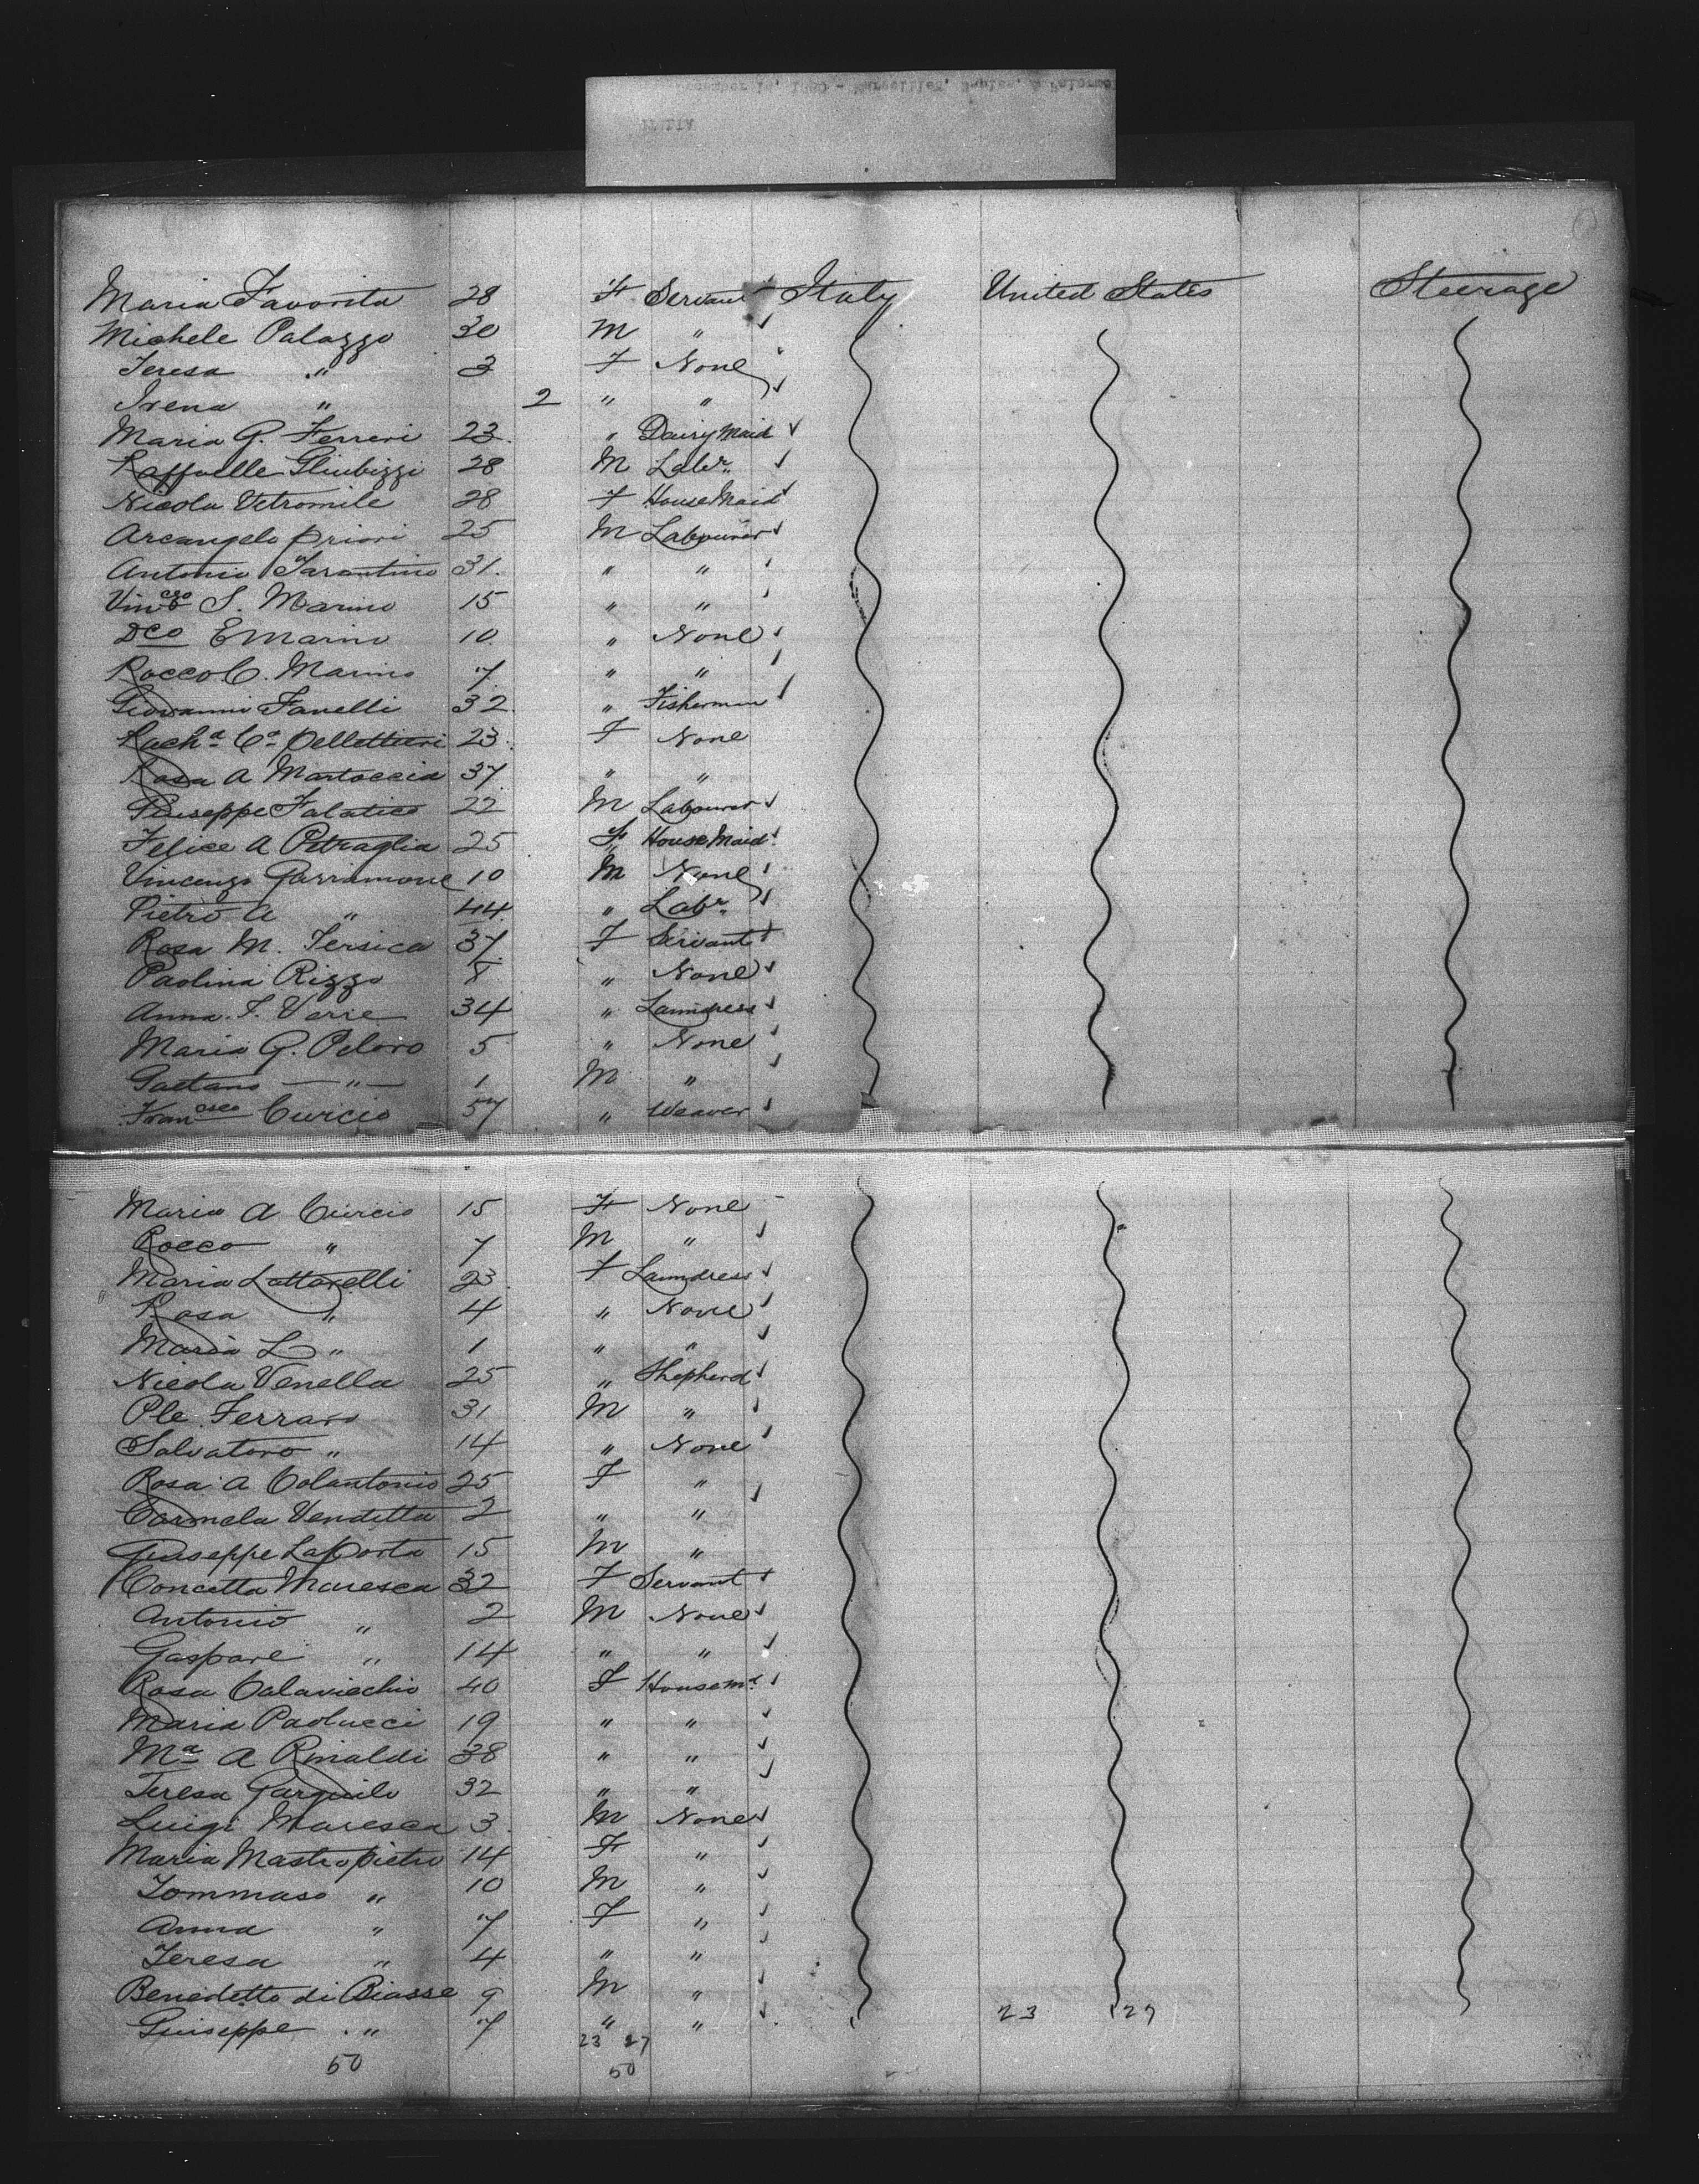 Maria Favorita 28 F Servant Italy United States Steerage
Michele Palazzo 30 M "
Teresa " 3 F None
Irena " 2 " "
Maria G. Ferreri 23 " Dairy Maid
Raffaelle 28 M Labr.
Nicola Vetromile 28 F House Maid
Arcangelo Priori 25 M Labourer
Antonio Tarantino 31 " "
Vinczo S. Marino 15 " "
Dco E Marino 10 " None
Rocco C. Marino 7 " "
Giovanni Fanelli 32 " Fisherman
Racha Ca Pellettieri 23 F None
Rosa A Martoccia 37 " "
Giuseppe Falatico 22 M Labourer
Felice A Petraglia 25 F House Maid
Vincenzo Garramone 10 M None
Pietro A " 44 " Labr.
Rosa M. Tersica 37 F Servant
Paolina Rizzo 8 " None
Anna F. Verre 34 " Laundress
Maria G. Peloro 5 " None
Gaetano " 1 M "
Francesco Curcio 57 " Weaver
Maria A Curcio 15 F None
Rocco " 7 M "
Maria Lattarelli 23 F Laundress
Rosa " 4 " None
Maria L " 1 " "
Nicola Venella 25 " Shepherd
Ple Ferraro 31 M "
Salvatore " 14 " None
Rosa A Colantonio 25 F "
Carmela Venditta 2 " "
Giuseppe LaPorta 15 M "
Concetta Maresca 32 F Servant
Antonio " 2 M None
Gaspare " 14 " "
Rosa Calavecchio 40 F Housemd.
Maria Paolucci 19 " "
Ma A Rinaldi 38 " "
Teresa Garguilo 32 " "
Luigi Maresca 3 M None
Maria Mastropietro 14 F "
Tommaso " 10 M "
Anna " 7 F "
Teresa " 4 " "
Benedetto di Biasse 9 M "
Guiseppe " 7 " "
23 27 23 27
50 50